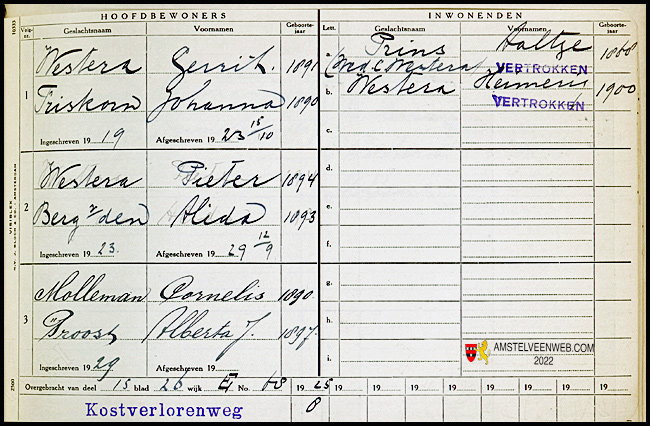 HOOFDBEWONERS INWONENDEN
Volg-nr. Geslachtsnaam Voornamen Geboorte-jaar Lett. Geslachtsnaam Voornamen Geboorte-jaar
1 Westera Gerrit. 1891
Friskorn Johanna 1890
Ingeschreven 19 19 Afgeschreven 19 23 15/10
a. Prins Aaltje 1868
(Wed. C. Westera) VERTROKKEN
b. Westera 1900
VERTROKKEN
c.
2 Westera Pieter 1894
Berg v/den Alida 1893
Ingeschreven 19 23. Afgeschreven 19 29 12/9
d.
e.
f.
3 Molleman Cornelis 1890.
Proost Alberta J. 1897.
Ingeschreven 19 29 Afgeschreven 19
g.
h.
i.
AMSTELVEENWEB.COM
2022
Overgebracht van deel 15 blad 26 wijk No. 68 19 25 19 19 19 19 19 19 19 19
Kostverlorenweg 8